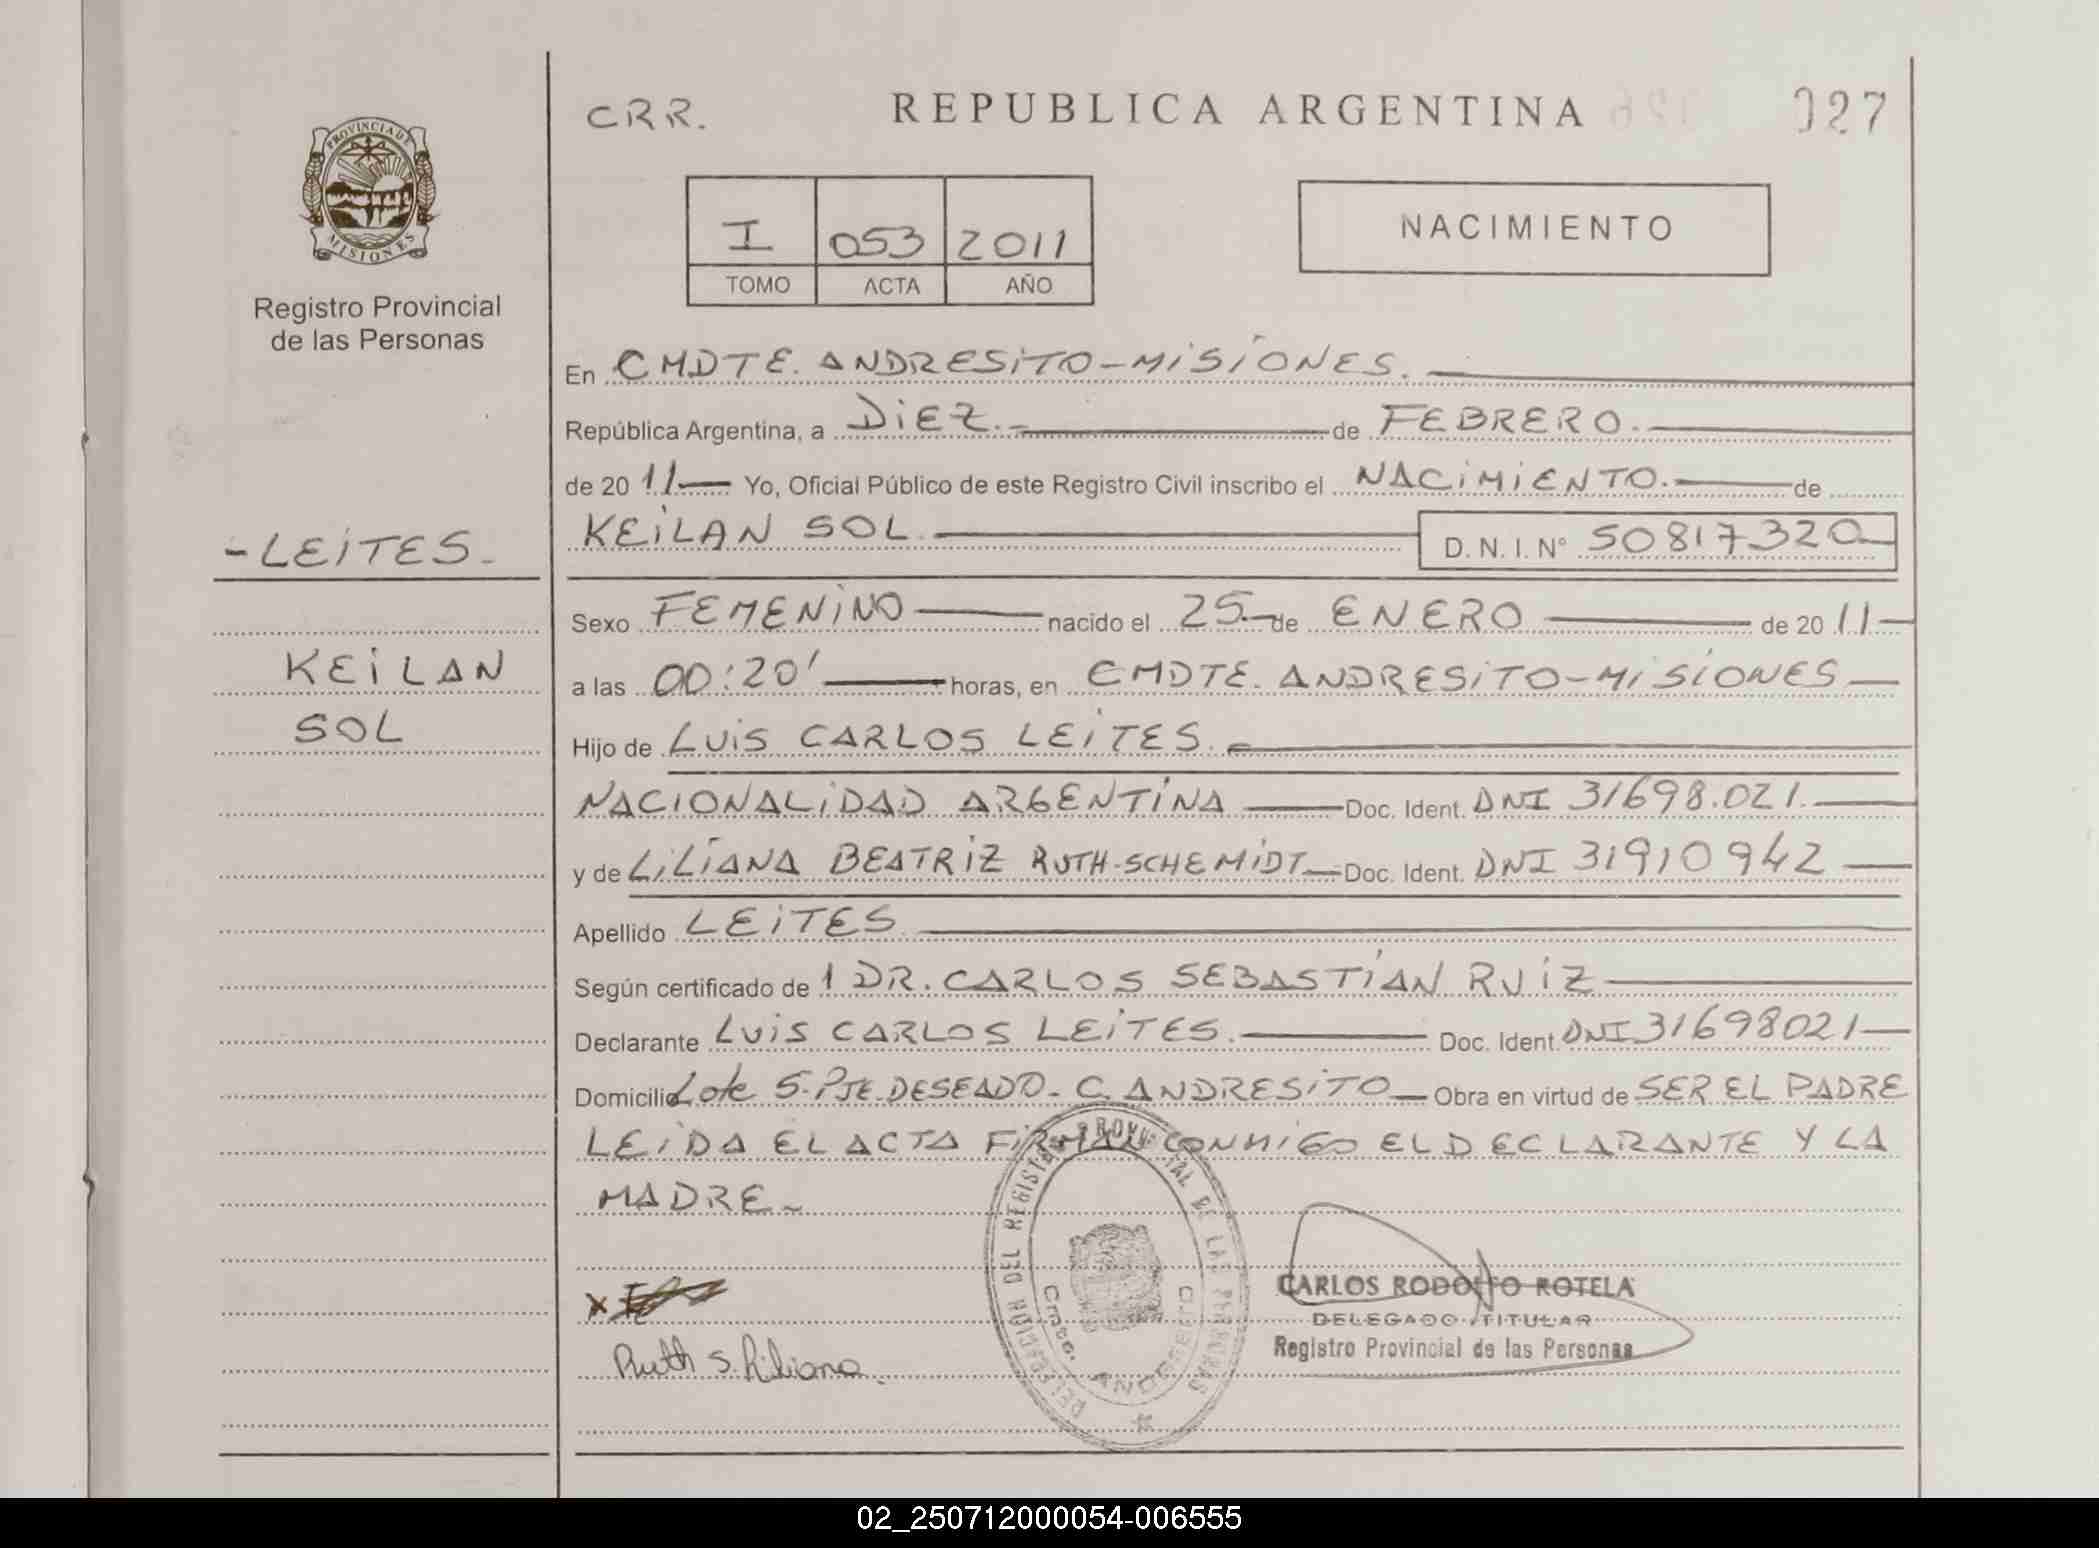 CRR.
REPUBLICA ARGENTINA
027
PROVINCIA DE
MISIONES
I 053 2011
TOMO ACTA AÑO
NACIMIENTO
Registro Provincial
de las Personas
En CMDTE. ANDRESITO - MISIONES.
República Argentina, a DIEZ.- de FEBRERO.
de 20 11 Yo, Oficial Público de este Registro Civil inscribo el NACIMIENTO. de
KEILAN SOL. D. N. I. Nº 50817320
- LEITES -
Sexo FEMENINO nacido el 25.- de ENERO de 20 11
KEILAN
a las 00:20' horas, en CMDTE. ANDRESITO - MISIONES
SOL
Hijo de LUIS CARLOS LEITES.
NACIONALIDAD ARGENTINA Doc. Ident. DNI 31698.021.
y de LILIANA BEATRIZ RUTH-SCHEMIDT Doc. Ident. DNI 31910942
Apellido LEITES
Según certificado de 1 DR. CARLOS SEBASTIAN RUIZ
Declarante LUIS CARLOS LEITES. Doc. Ident DNI 31698021
Domicilio Lote 5-PJE.DESEADO - C. ANDRESITO Obra en virtud de SER EL PADRE
LEIDA EL ACTA FIRMAN CONMIGO EL DECLARANTE Y LA
MADRE
DEL REGISTRO PROVINCIAL DE LAS PERSONAS
Cmte. ANDRESITO
CARLOS RODOLFO ROTELA
DELEGADO TITULAR
Registro Provincial de las Personas
x
Ruth S. Liliana.
02_250712000054-006555